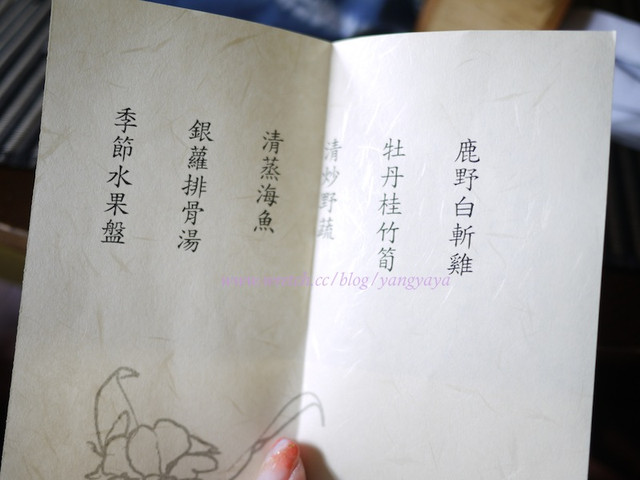 鹿野白斬雞
牡丹桂竹筍
清炒野蔬
清蒸海魚
銀蘿排骨湯
季節水果盤
.cc/blog/yangyaya